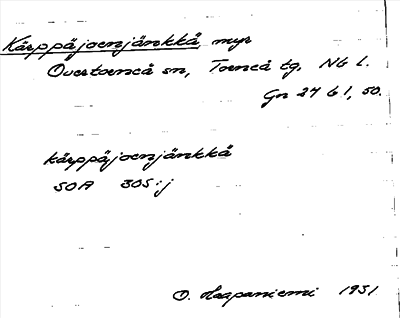 Kärppäjoenjänkkä, myr
Övertorneå sn, Torneå tg, NB L.
Gn 27 b 1, 50.
kärppäjoenjänkkä
SOA 305:j
O. Haapaniemi 1931